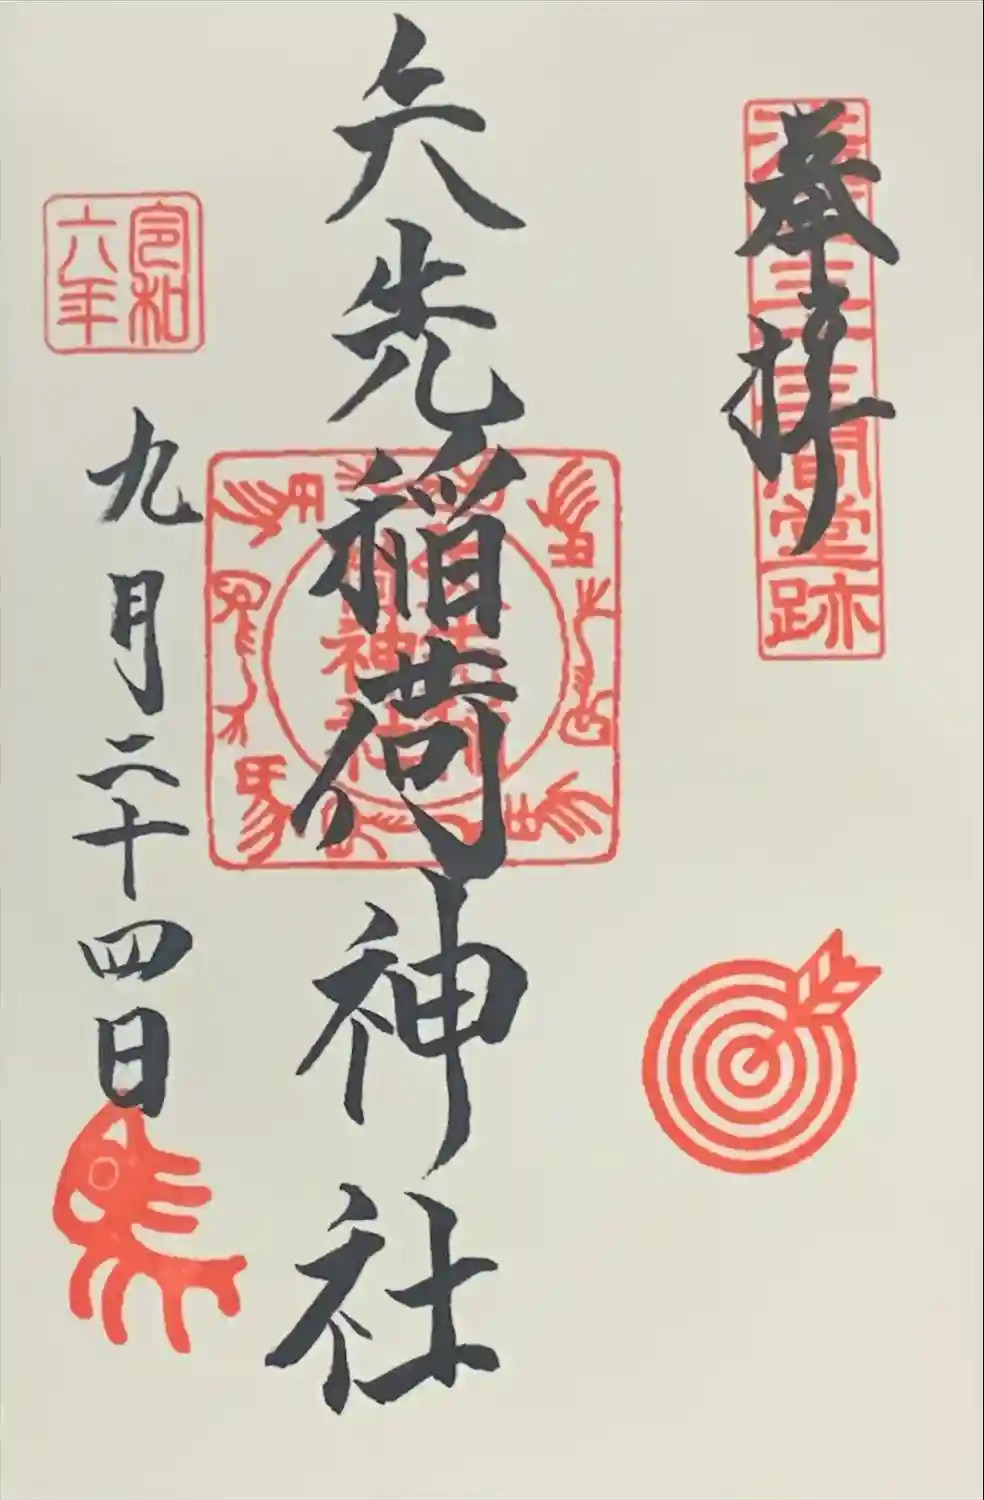 奉拝
三十三間堂跡
矢先稲荷神社
令和六年
九月二十四日